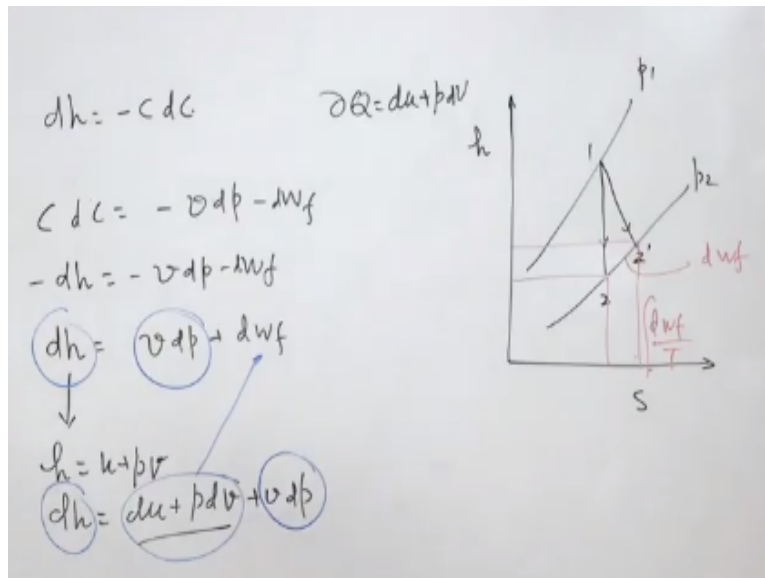 dh = - C dC
∂Q = du + pdv
C dC = - vdp - dwf
- dh = - vdp - dwf
dh = vdp + dwf
h = u + pv
dh = du + pdv + vdp
h
p1
p2
1
2
2'
dwf
∫ dwf/T
S